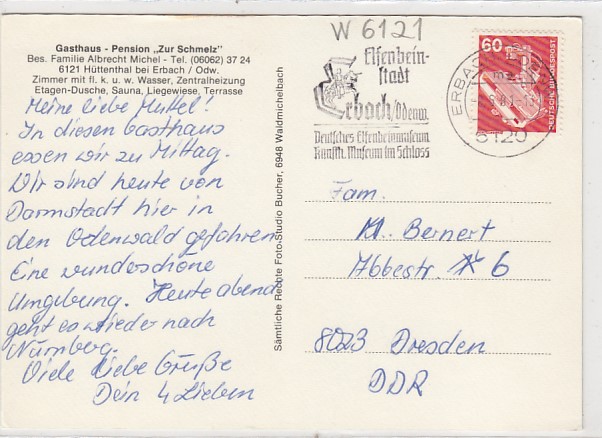 Gasthaus - Pension „Zur Schmelz"
Bes. Familie Albrecht Michel - Tel. (06062) 37 24
6121 Hüttenthal bei Erbach / Odw.
Zimmer mit fl. k. u. w. Wasser, Zentralheizung
Etagen-Dusche, Sauna, Liegewiese, Terrasse
Meine liebe Muttel!
In diesen Gasthaus
essen wir zu Mittag.
Wir sind heute von
Darmstadt hier in
den Odenwald gefahren.
Eine wunderschöne
Umgebung. Heute abend
geht es wieder nach
Nürnberg.
Viele liebe Grüße
Dein 4 Lieben
Sämtliche Rechte Foto-Studio Bucher, 6948 Waldmichelbach
W 6121
Elfenbein-
stadt
Erbach/Odenw.
Deutsches Elfenbeinmuseum
Kunsth. Museum im Schloss
ERBACH
6120
60
DEUTSCHE BUNDESPOST
Fam.
Kl. Bernert
Abbestr. 6
8023 Dresden
DDR